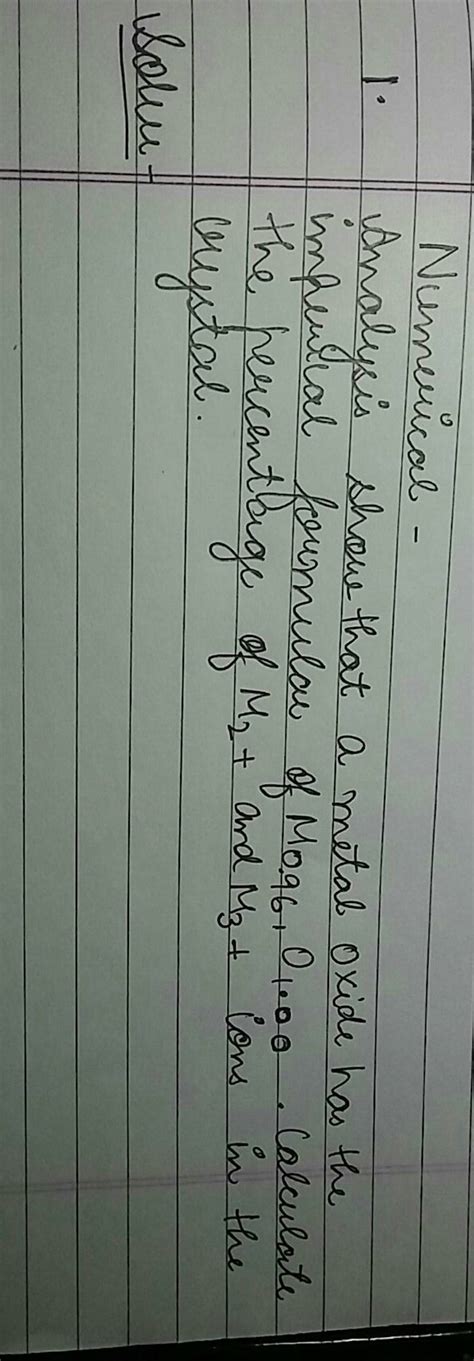 Numerical -
1. Analysis show that a metal oxide has the
imperical formulae of M0.96, O1.00. Calculate
the percentage of M2+ and M3+ ions in the
crystal.
Solu -